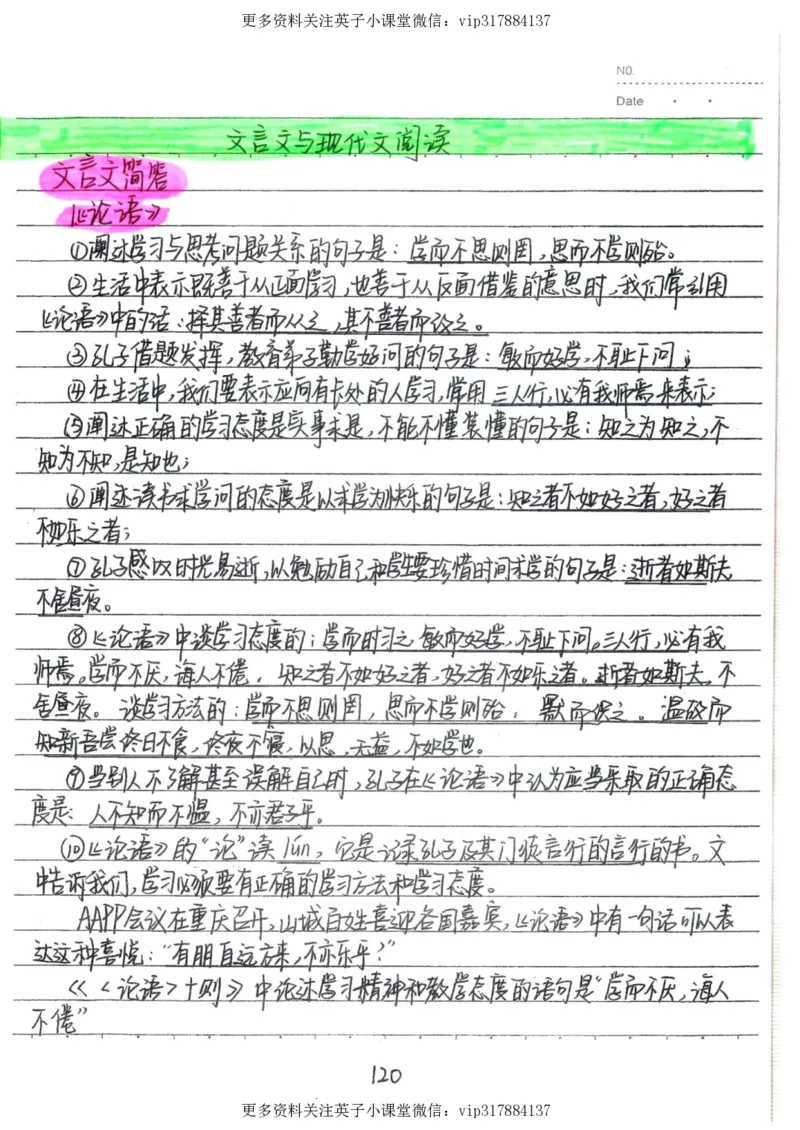 更多资料关注英子小课堂微信：vip317884137
NO.
Date
文言文与现代文阅读
文言文简答
《论语》
①阐述学习与思考问题关系的句子是：学而不思则罔，思而不学则殆。
②生活中表示既善于从正面学习，也善于从反面借鉴的意思时，我们常引用
《论语》中的话：择其善者而从之，其不善者而改之。
③孔子借题发挥，教育弟子勤学好问的句子是：敏而好学，不耻下问；
④在生活中，我们要表示应向有长处的人学习，常用 三人行，必有我师焉 来表示；
⑤阐述正确的学习态度是实事求是，不能不懂装懂的句子是：知之为知之，不
知为不知，是知也；
⑥阐述读书求学问的态度是以求学为快乐的句子是：知之者不如好之者，好之者
不如乐之者；
⑦孔子感叹时光易逝，以勉励自己和学生要珍惜时间求学的句子是：逝者如斯夫
不舍昼夜。
⑧《论语》中谈学习态度的：学而时习之 敏而好学，不耻下问。三人行，必有我
师焉。学而不厌，诲人不倦。知之者不如好之者，好之者不如乐之者。逝者如斯夫，不
舍昼夜。谈学习方法的：学而不思则罔，思而不学则殆。默而识之。温故而
知新吾尝终日不食，终夜不寝，以思，无益，不如学也。
⑨当别人不了解甚至误解自己时，孔子在《论语》中认为应当采取的正确态
度是：人不知而不愠，不亦君子乎。
⑩《论语》的“论”读 lún，它是记录孔子及其门徒言行的言行的书。文
中告诉我们，学习必须要有正确的学习方法和学习态度。
AAPP会议在重庆召开，山城百姓喜迎各国嘉宾，《论语》中有一句话可以表
达这种喜悦：“有朋自远方来，不亦乐乎？”
《〈论语〉十则》中论述学习精神和教学态度的语句是“学而不厌，诲人
不倦”
120
更多资料关注英子小课堂微信：vip317884137